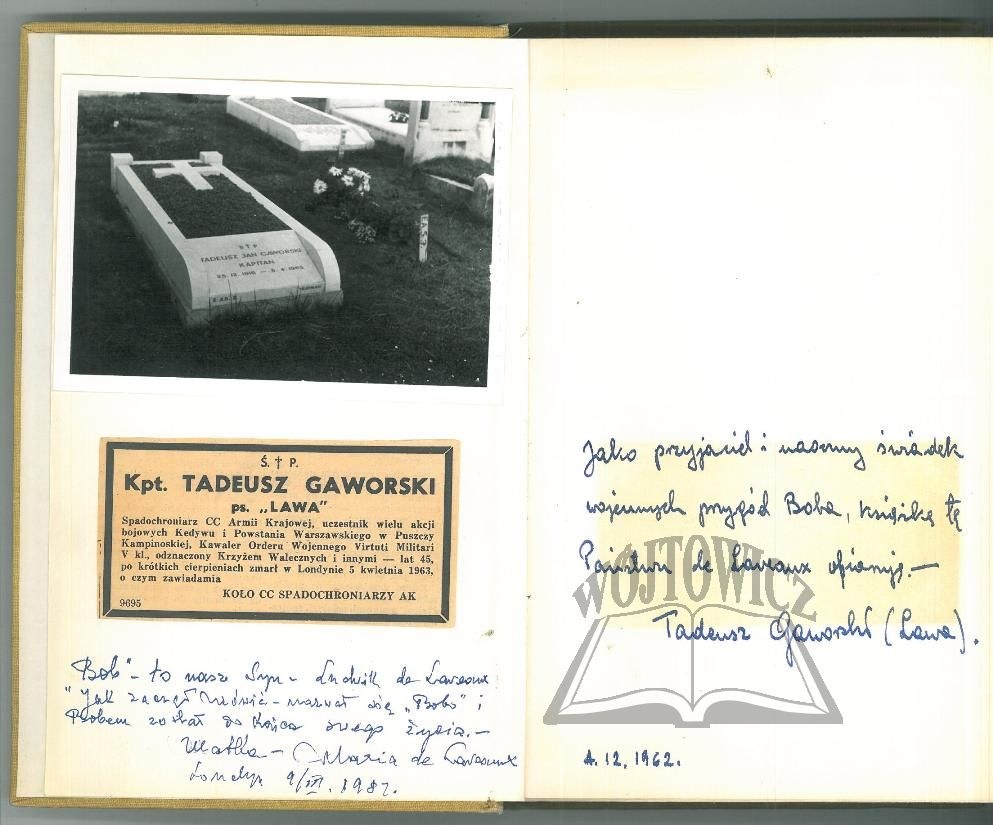 Ś † P
TADEUSZ JAN GAWORSKI
KAPITAN
Ś. † P.
Kpt. TADEUSZ GAWORSKI
ps. „LAWA"
Spadochroniarz CC Armii Krajowej, uczestnik wielu akcji
bojowych Kedywu i Powstania Warszawskiego w Puszczy
Kampinoskiej, Kawaler Orderu Wojennego Virtuti Militari
V kl., odznaczony Krzyżem Walecznych i innymi — lat 45,
po krótkich cierpieniach zmarł w Londynie 5 kwietnia 1963,
o czym zawiadamia
KOŁO CC SPADOCHRONIARZY AK
9695
„Bob" - to nasz Syn - Ludwik de Laveaux
"Jak zaczął mówić - nazwał się „Bobo" i
Bobem został do końca swego życia.-
Matka - Maria de Laveaux
Londyn 9/III. 198
Jako przyjaciel i naoczny świadek
wojennych przygód Boba, książkę tę
Państwu de Laveaux ofiaruję.—
Tadeusz Gaworski (Lawa).
4.12.1962.
WÓJTOWICZ